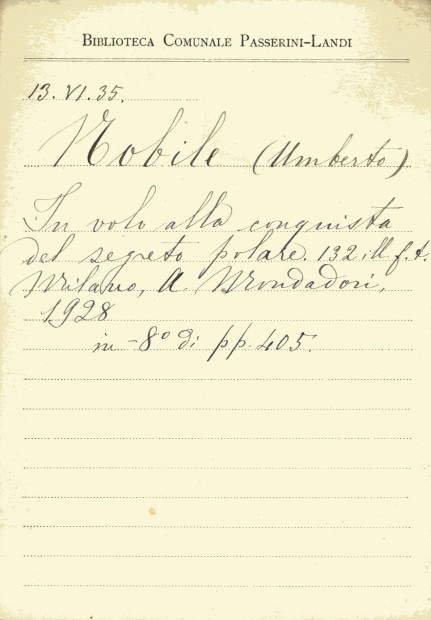 BIBLIOTECA COMUNALE PASSERINI-LANDI
13.VI.35.
Nobile (Umberto)
In volo alla conquista
del segreto polare. 132 ill f.t.
Milano, A. Mondadori,
1928
in-8° di pp. 405.